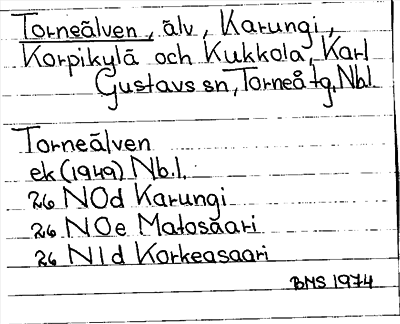 Torneälven, älv, Karungi,
Korpikylä och Kukkola, Karl
Gustavs sn, Torneå tg, Nbl.
Torneälven
ek (1949) Nb.l.
26 NOd Karungi
26 NOe Matosaari
26 N1d Korkeasaari
BMS 1974